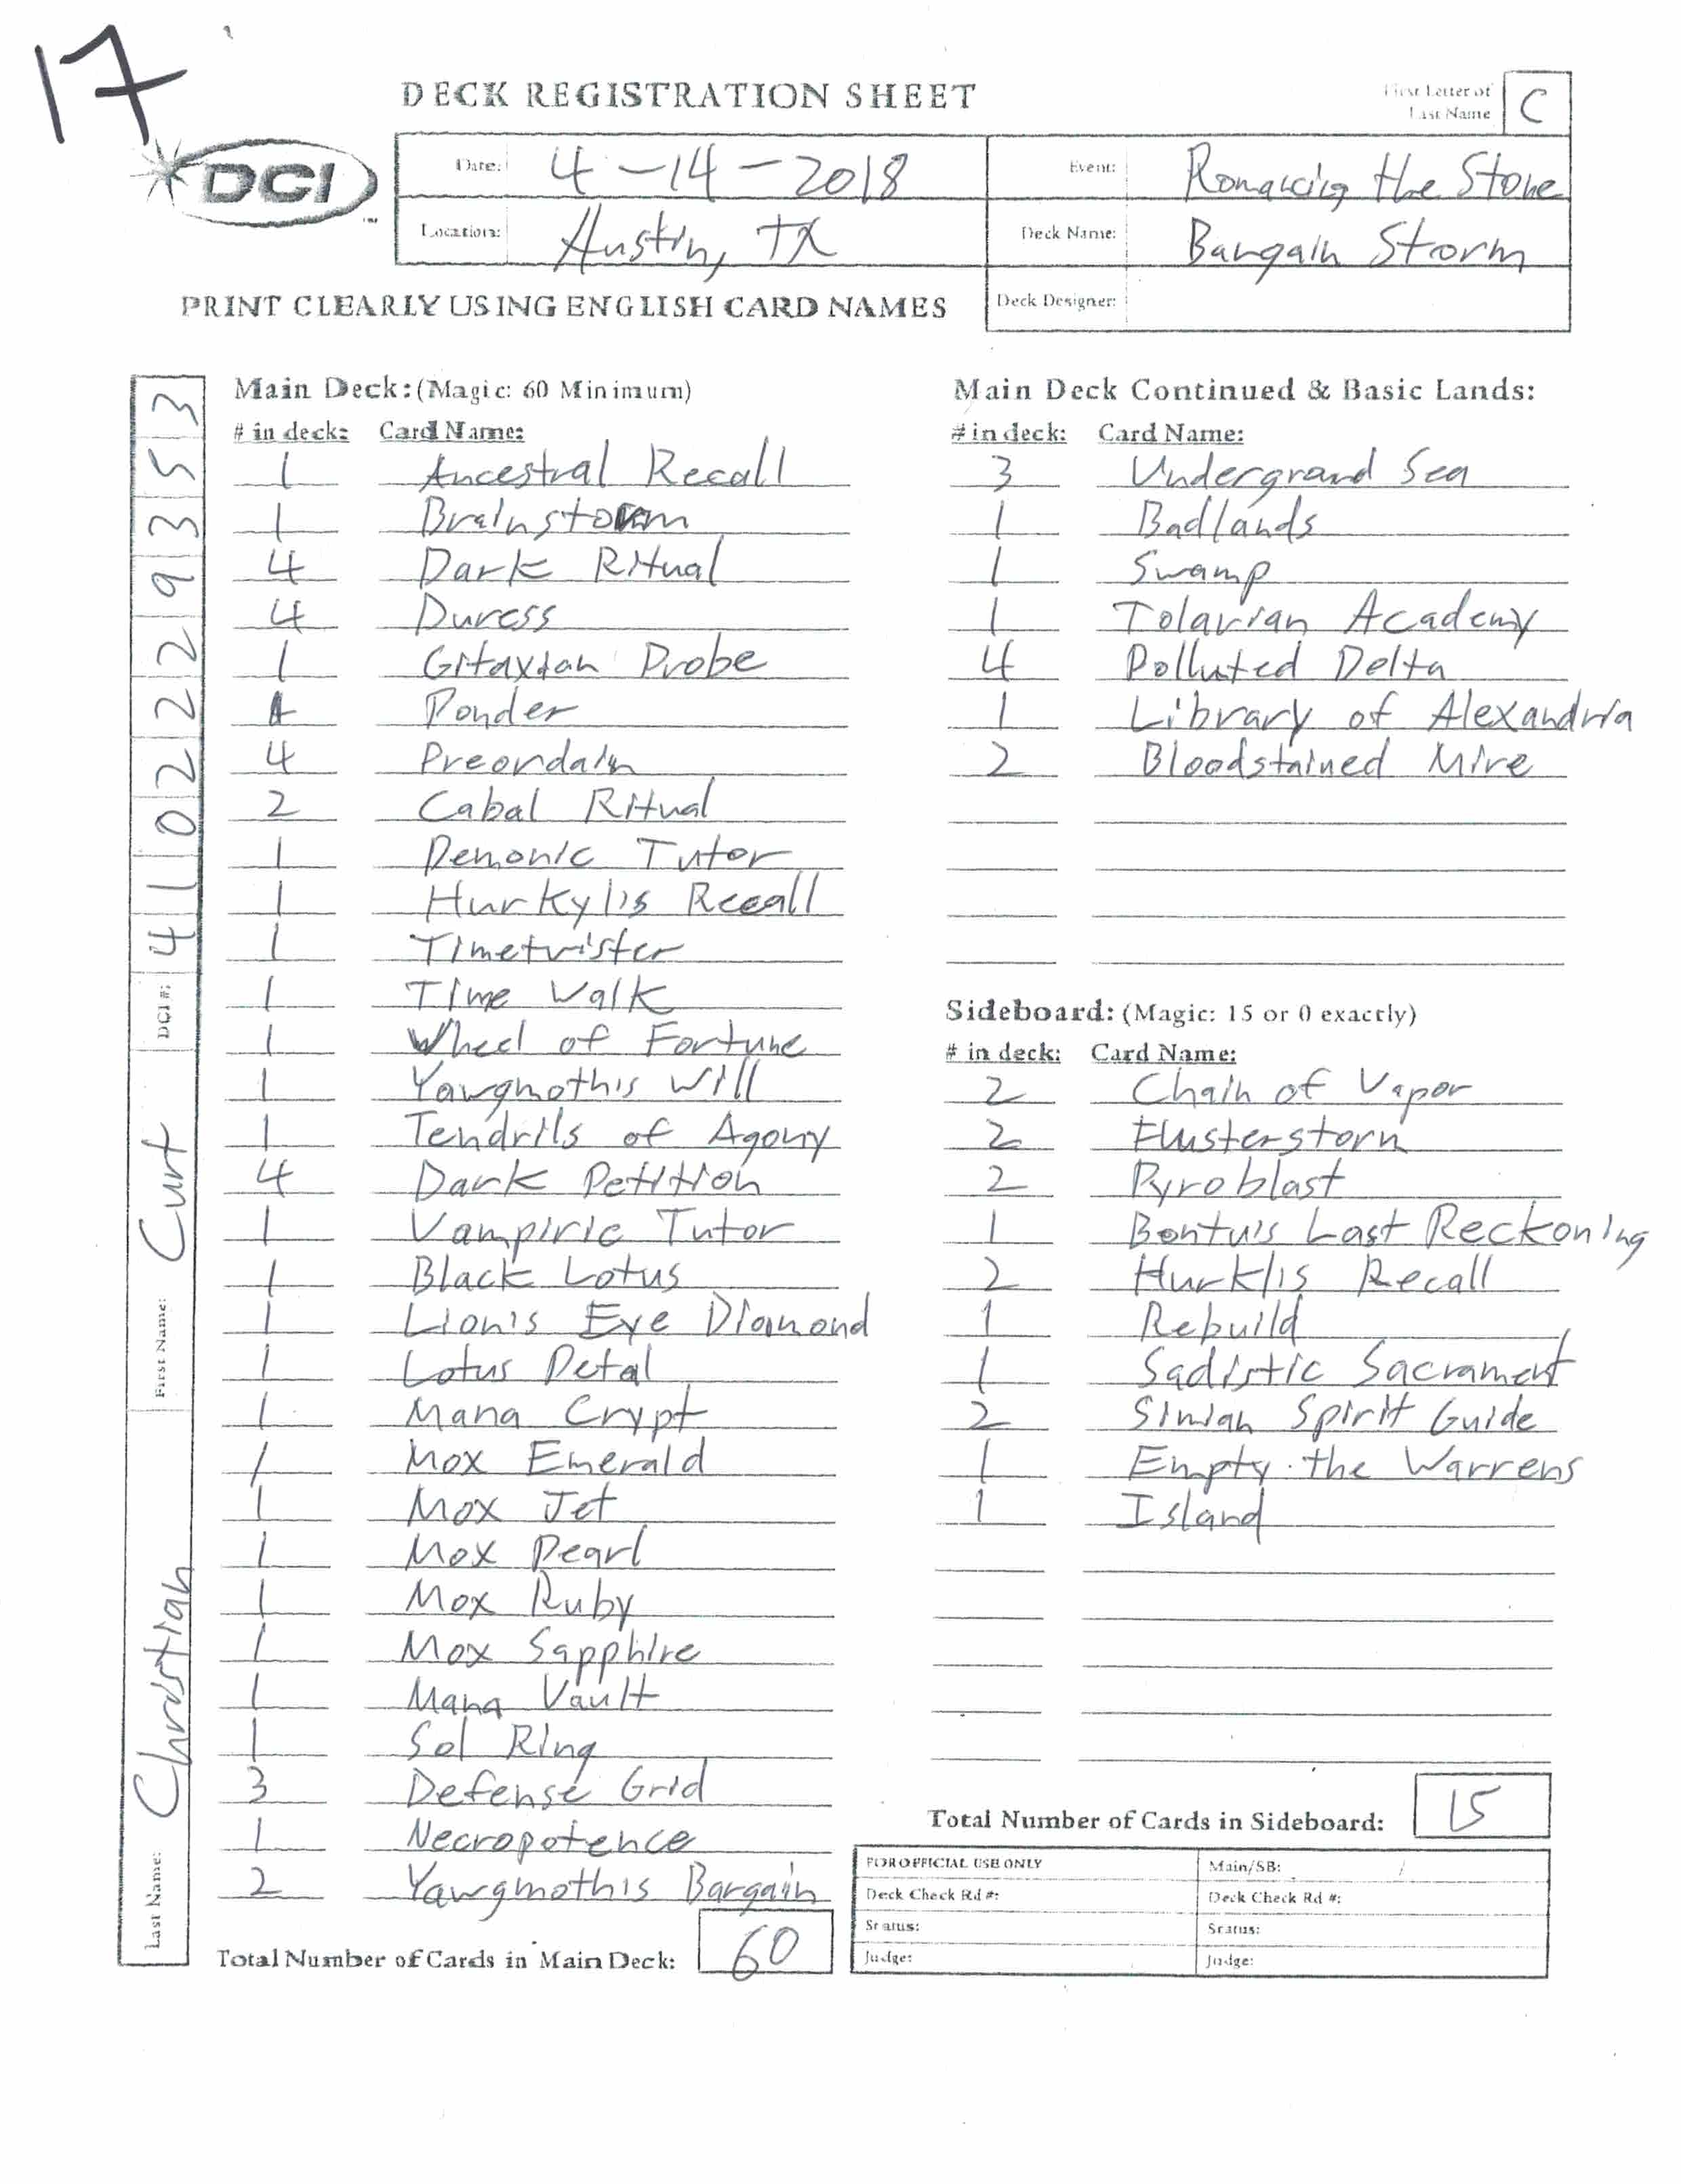 17
DECK REGISTRATION SHEET
First Letter of
Last Name
C
DCI
Date: 4-14-2018
Event: Romancing the Stone
Location: Austin, TX
Deck Name: Bargain Storm
PRINT CLEARLY USING ENGLISH CARD NAMES
Deck Designer:
DCI #: 4102229353
First Name: Curt
Last Name: Christian
Main Deck: (Magic: 60 Minimum)
# in deck: Card Name:
1 Ancestral Recall
1 Brainstorm
4 Dark Ritual
4 Duress
1 Gitaxian Probe
1 Ponder
4 Preordain
2 Cabal Ritual
1 Demonic Tutor
1 Hurkyl's Recall
1 Timetwister
1 Time Walk
1 Wheel of Fortune
1 Yawgmoth's Will
1 Tendrils of Agony
4 Dark Petition
1 Vampiric Tutor
1 Black Lotus
1 Lion's Eye Diamond
1 Lotus Petal
1 Mana Crypt
1 Mox Emerald
1 Mox Jet
1 Mox Pearl
1 Mox Ruby
1 Mox Sapphire
1 Mana Vault
1 Sol Ring
3 Defense Grid
1 Necropotence
2 Yawgmoth's Bargain
Total Number of Cards in Main Deck: 60
Main Deck Continued & Basic Lands:
# in deck: Card Name:
3 Undergrand Sea
1 Badlands
1 Swamp
1 Tolarian Academy
4 Polluted Delta
1 Library of Alexandria
2 Bloodstained Mire
Sideboard: (Magic: 15 or 0 exactly)
# in deck: Card Name:
2 Chain of Vapor
2 Flusterstorm
2 Pyroblast
1 Bontu's Last Reckoning
2 Hurkl's Recall
1 Rebuild
1 Sadistic Sacrament
2 Simian Spirit Guide
1 Empty the Warrens
1 Island
Total Number of Cards in Sideboard: 15
FOR OFFICIAL USE ONLY
Main/SB: /
Deck Check Rd #:
Deck Check Rd #:
Status:
Status:
Judge:
Judge: